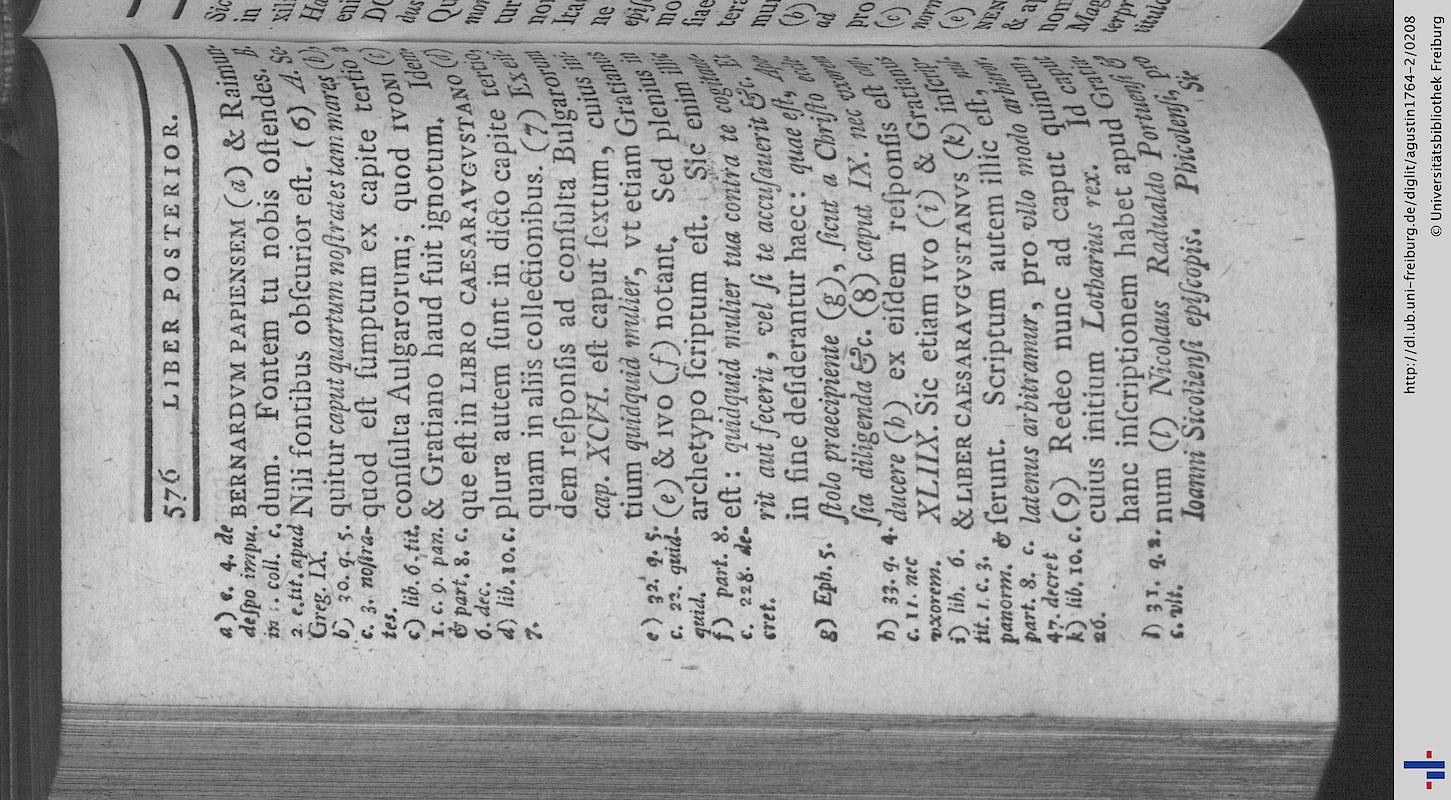 576 LIBER POSTERIOR.
BERNARDVM PAPIENSEM (a) & Raimun-
dum. Fontem tu nobis oſtendes. B.
Nili fontibus obſcurior eſt. (6) A. Se-
quitur caput quartum noſtrates tam mares (b),
quod eſt ſumptum ex capite tertio a
conſulta Aulgarorum; quod IVONI (c)
& Gratiano haud fuit ignotum. Idem-
que eſt in LIBRO CAESARAVGVSTANO (d)
plura autem ſunt in dicto capite tertio,
quam in aliis collectionibus. (7) Ex eis-
dem reſponſis ad conſulta Bulgarorum
cap. XCVI. eſt caput ſextum, cuius ini-
tium quidquid mulier, vt etiam Gratianus
(e) & IVO (f) notant. Sed plenius in
archetypo ſcriptum eſt. Sic enim illic
eſt: quidquid mulier tua contra te cogitaue-
rit aut fecerit, vel ſi te accuſauerit &c. Et
in fine deſiderantur haec: quae eſt, Apo-
ſtolo praecipiente (g), ſicut a Chriſto eccle-
ſia diligenda &c. (8) caput IX. nec vxorem
ducere (h) ex eiſdem reſponſis eſt cap.
XLIIX. Sic etiam IVO (i) & Gratianus
& LIBER CAESARAVGVSTANVS (k) inſerue-
ſerunt. Scriptum autem illic eſt, nul-
latenus arbitramur, pro vllo modo arbitra-
(9) Redeo nunc ad caput quintum,
cuius initium Lotharius rex. Id caput
hanc inſcriptionem habet apud Gratia-
num (l) Nicolaus Radualdo Portuenſi &
Ioanni Sicolienſi epiſcopis. Phicolenſi, pro
Sic
a) c. 4. de
deſpo impu.
in 1. coll. c.
2. e. tit. apud
Greg. IX.
b) 30. q. 5.
c. 3. noſtra-
tes.
c) lib. 6. tit.
1. c. 9. pan.
& part. 8. c.
6. dec.
d) lib. 10. c.
7.
e) 32. q. 5.
c. 22. quid-
quid.
f) part. 8.
c. 228. de-
cret.
g) Eph. 5.
h) 33. q. 4.
c. 11. nec
vxorem.
i) lib. 6.
tit. 1. c. 3.
panorm. &
part. 8. c.
47. decret
k) lib. 10. c.
26.
l) 31. q. 2.
c. vlt.
http://dl.ub.uni-freiburg.de/diglit/agustin1764-2/0208
© Universitätsbibliothek Freiburg